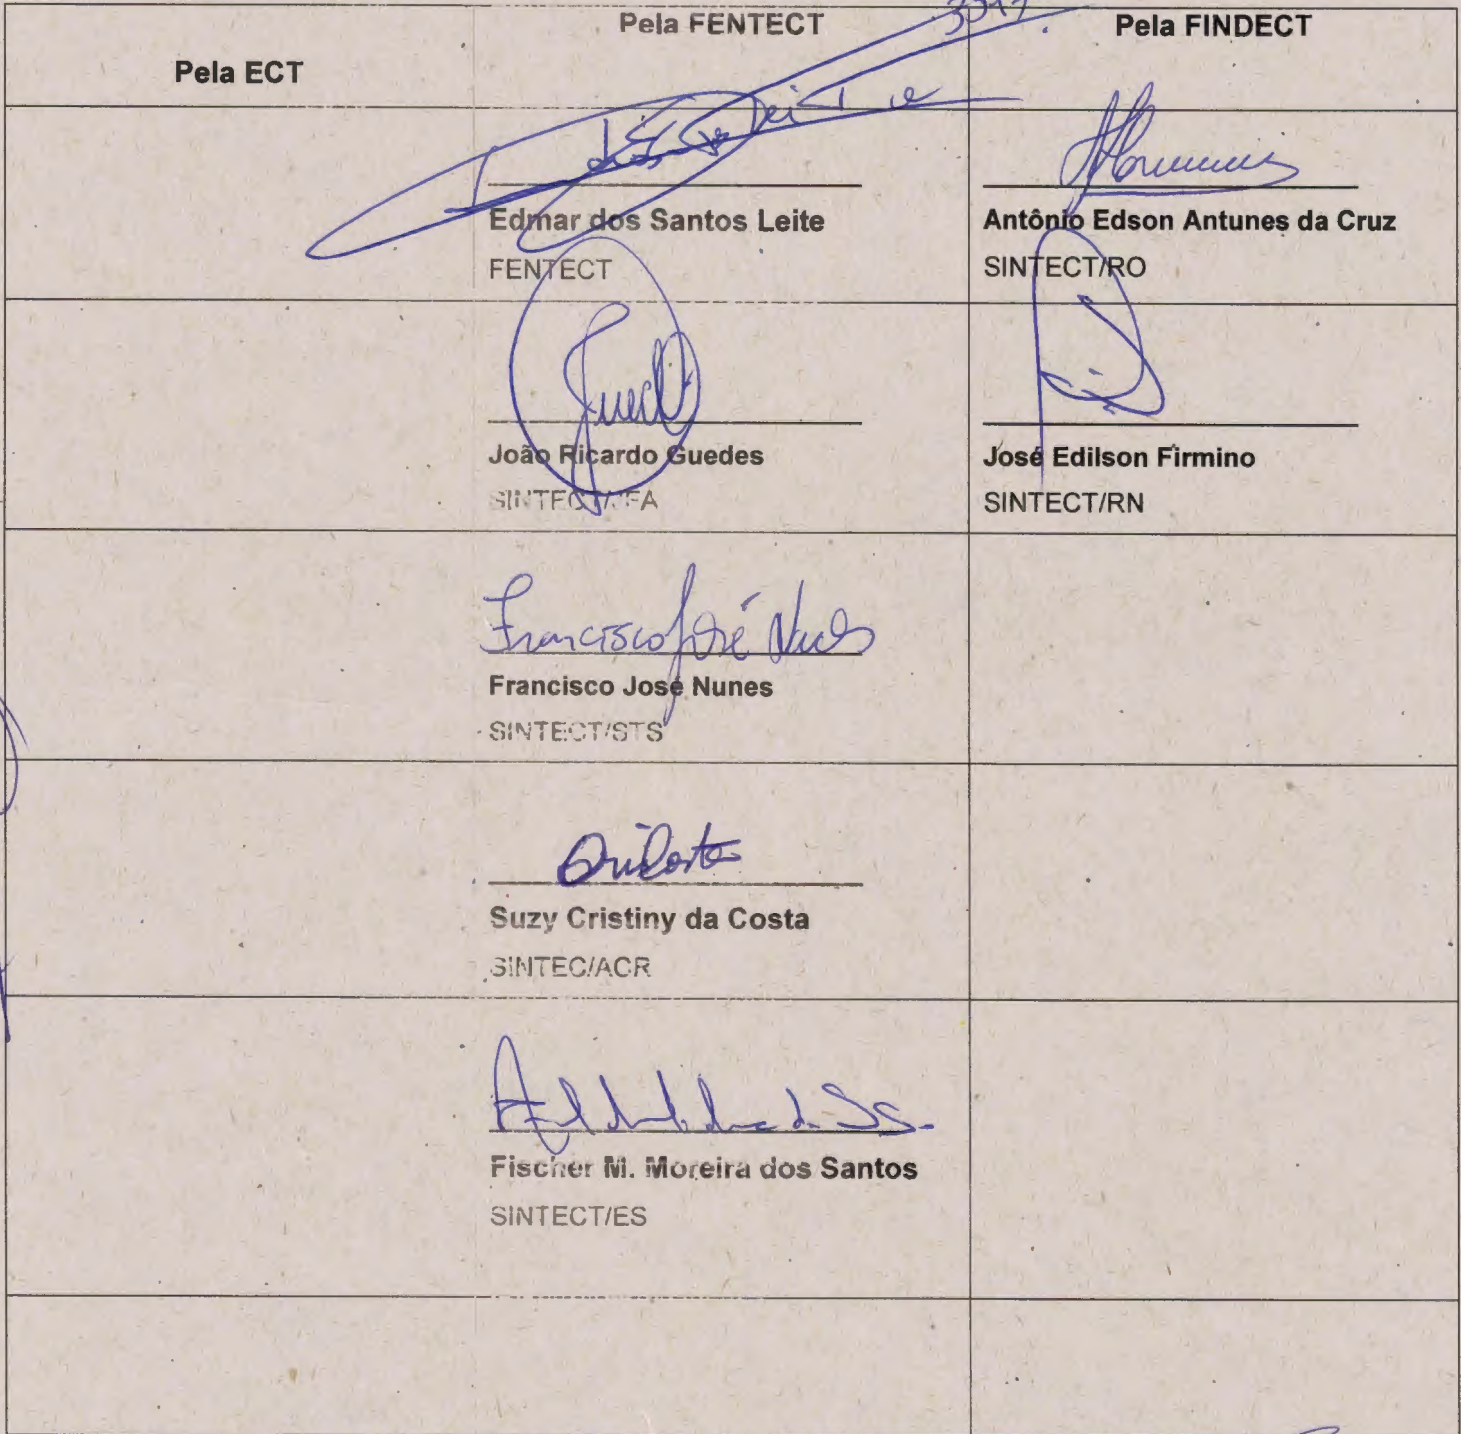 Pela ECT
Pela FENTECT
Pela FINDECT
Edmar dos Santos Leite
FENTECT
Antônio Edson Antunes da Cruz
SINTECT/RO
João Ricardo Guedes
José Edilson Firmino
SINTECT/RN
Francisco José Nunes
Francisco José Nunes
SINTECT/STS
Suzy Cristiny da Costa
SINTEC/ACR
Fischer M. Moreira dos Santos
SINTECT/ES